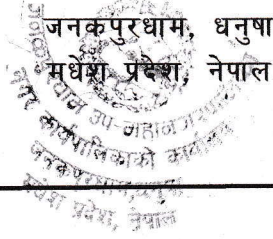 जनकपुरधाम, धनुषा
मधेश प्रदेश, नेपाल
उप-महानगरपालिका
नगर कार्यपालिकाको कार्यालय
जनकपुरधाम, धनुषा
मधेश प्रदेश, नेपाल